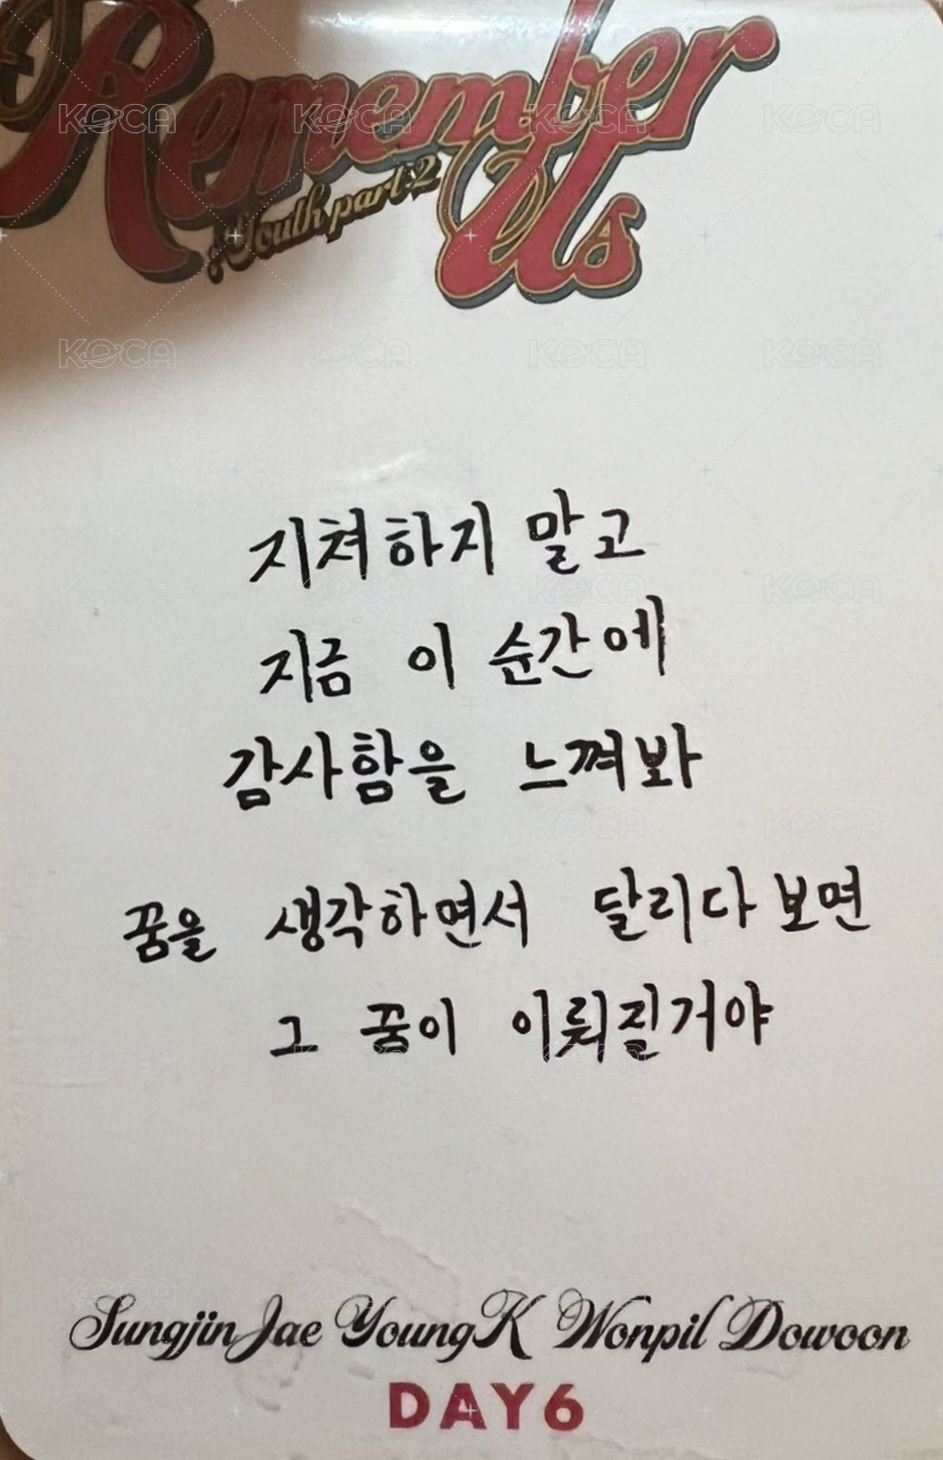 Remember
Us
: Youth part 2
KOCA KOCA KOCA KOCA
KOCA KOCA KOCA KOCA
지쳐하지 말고
지금 이 순간에
감사함을 느껴봐
꿈을 생각하면서 달리다 보면
그 꿈이 이뤄질거야
Sungjin Jae YoungK Wonpil Dowoon
DAY6